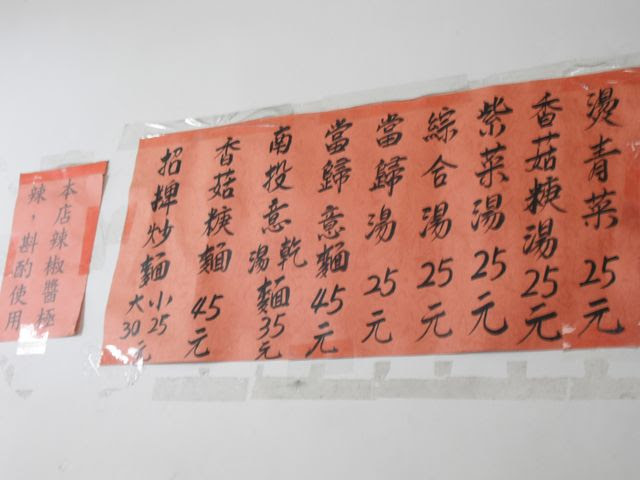 燙青菜 25元
香菇粳湯 25元
紫菜湯 25元
綜合湯 25元
當歸湯 25元
當歸意麵 45元
南投意湯乾麵 35元
香菇粳麵 45元
招牌炒麵 小25 大30元
本店辣椒醬極
辣，斟酌使用